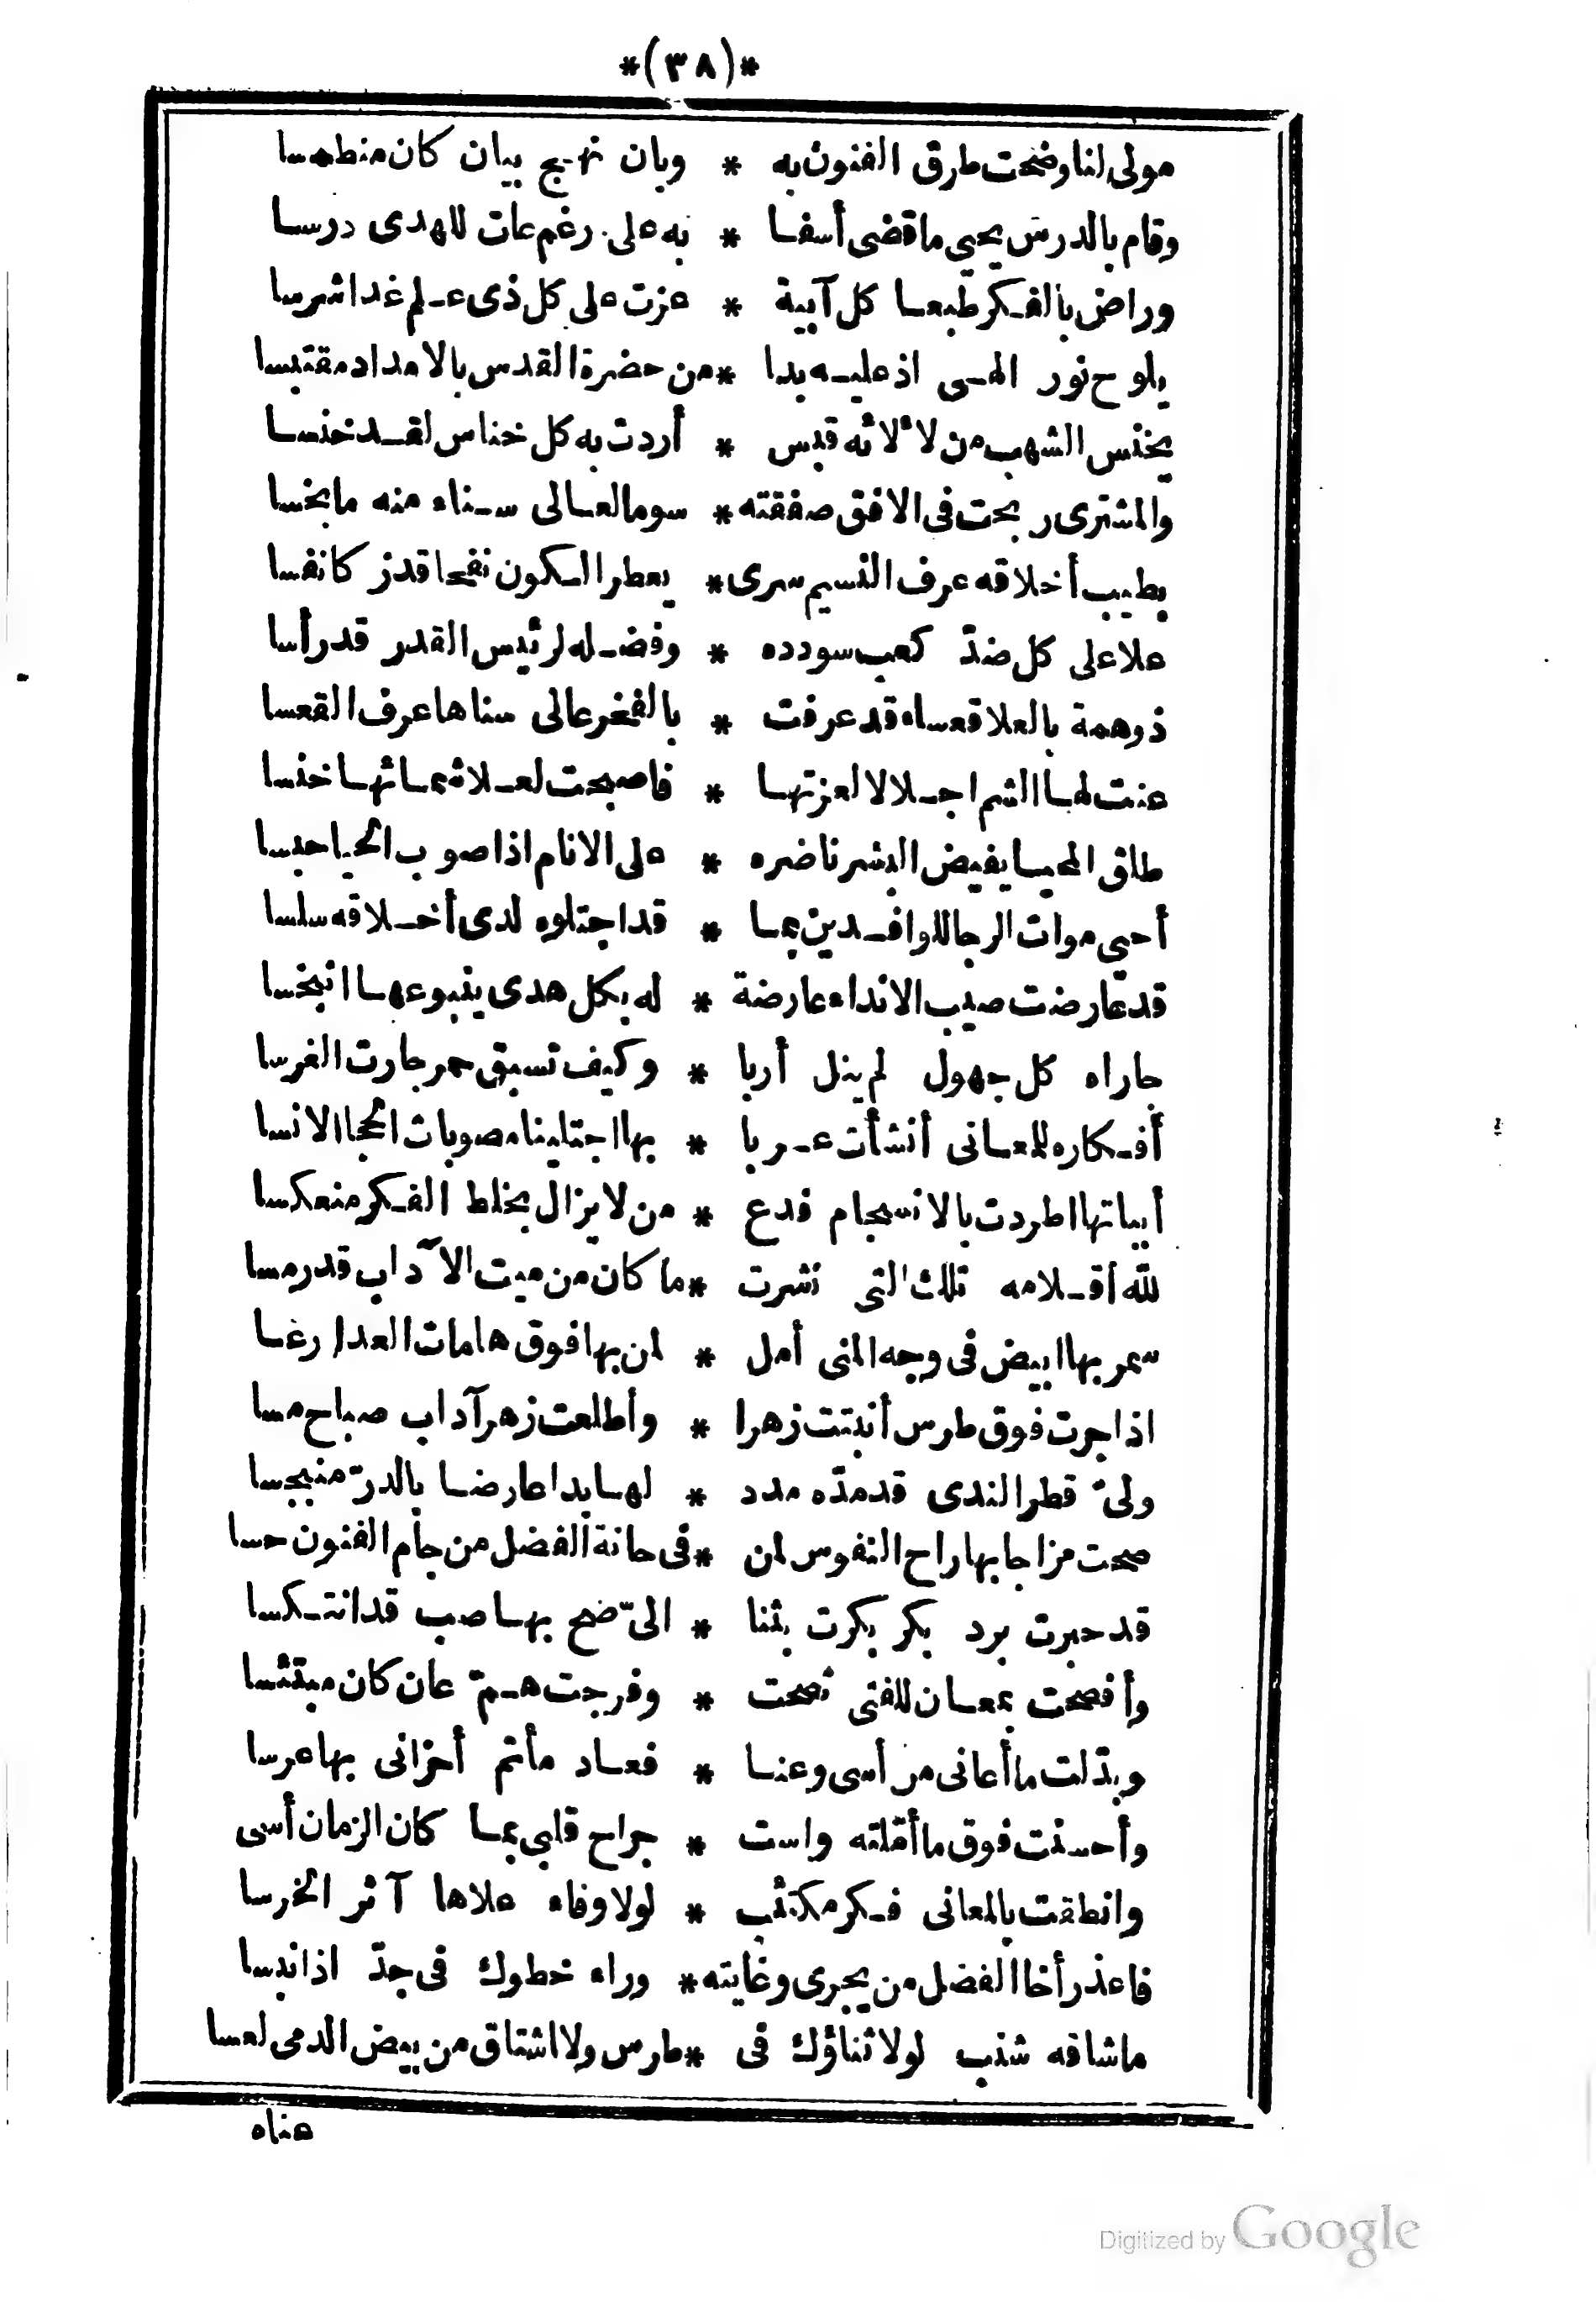 *(٣٨)*
مولى لنا وضحت طرق الفنون به * وبان نهج بيان كان منطمسا
وقام بالدرس يحيي ما قضى أسفا * به على رغم عات للهدى درسا
وراض بالفكر طبعا كل آبية * عزت على كل ذى علم غدا شرسا
يلوح نور الهى اذ عليه بدا * من حضرة القدس بالامداد مقتبسا
يخنس الشهب من لألائه قبس * أردت به كل خناس لقد خنسا
والمشترى ربحت فى الافق صفقته * سوما لعالى سناء منه ما بخسا
بطيب أخلاقه عرف النسيم سرى * يعطر الكون نفحا قد زكا نفسا
علا على كل ضدّ كعب سودده * وفضله لرئيس القدر قد رأسا
ذو همة بالعلا قعساء قد عرفت * بالفخر عالى سناها عرف القعسا
عنت لها الشم اجلالا لعزتها * فاصبحت لعلاء شمائها خنسا
طلق المحيا يفيض البشر ناضره * على الانام اذا صوب الحيا حبسا
أحيى موات الرجا للوافدين بما * قد اجتلوه لدى أخلاقه سلسا
قد عارضت صيب الانداء عارضة * له بكل هدى ينبوعها انبخسا
جاراه كل جهول لم ينل أربا * وكيف تسبق حمر جارت الفرسا
أفكاره للمعانى أنشأت عربا * بها اجتلينا مصوبات الحجا الانسا
أبياتها اطردت بالانسجام فدع * من لا يزال بخلط الفكر منعكسا
لله أقلامه تلك التى نشرت * ما كان من ميت الآداب قد رمسا
سمر بها ابيض فى وجه المنى أمل * لمن بها فوق هامات العدا رغسا
اذا جرت فوق طرس أنبتت زهرا * وأطلعت زهر آداب صباح مسا
ولى قطر الندى قد مدّه مدد * لها بدا عارضا بالدرّ منبجسا
صحت مزاجا بها راح النفوس لمن * فى حانة الفضل من جام الفنون حسا
قد حبرت برد بكر بكرت بثنا * الىّ ضح بها صب قد انتكسا
وأفصحت بمعان للفتى نصحت * وفرجت همّ عان كان مبتئسا
وبدّلت ما أعانى من أسى وعنا * فعاد مأتم أحزانى بها عرسا
وأحسنت فوق ما أمّلته واست * جراح قلبي بما كان الزمان أسى
وانطقت بالمعانى فكر مكتئب * لولا وفاء علاها آثر الخرسا
فاعذر أخا الفضل من يجرى وغايته * وراء خطوك فى جدّ اذا نبسا
ما شاقه شنب لولا ثناؤك فى * طرس ولا اشتاق من بيض الدمى لعسا
عناه
Digitized by Google